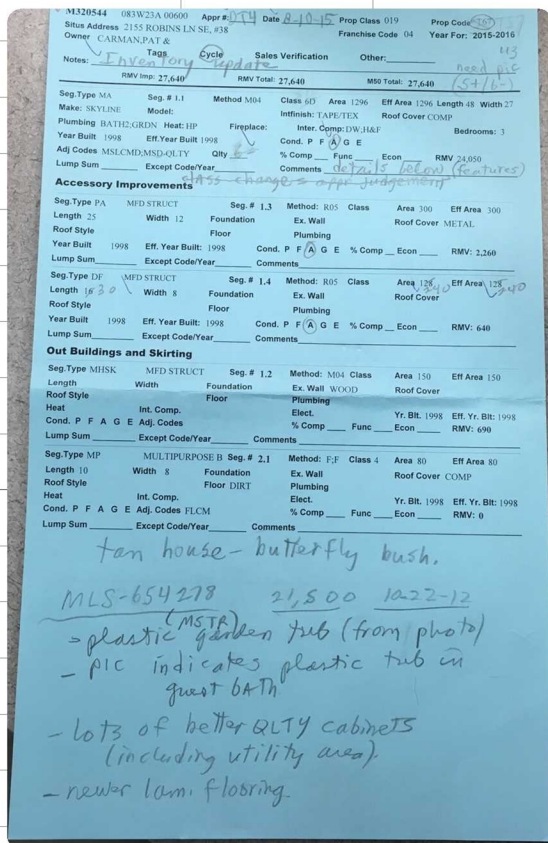 M320544 083W23A 00600 Appr# DT4 Date 8-10-15 Prop Class 019 Prop Code 167
Situs Address 2155 ROBINS LN SE, #38 Franchise Code 04 Year For: 2015-2016
Owner CARMAN,PAT &
Tags Cycle Sales Verification Other: M3
Notes: Inventory update need pic
RMV Imp: 27,640 RMV Total: 27,640 M50 Total: 27,640 (5+/6-)
Seg.Type MA Seg. # 1.1 Method M04 Class 6D Area 1296 Eff Area 1296 Length 48 Width 27
Make: SKYLINE Model: Intfinish: TAPE/TEX Roof Cover COMP
Plumbing BATH2;GRDN Heat: HP Fireplace: Inter. Comp: DW,H&F Bedrooms: 3
Year Built 1998 Eff.Year Built 1998 Cond. P F A G E
Adj Codes MSLCMD;MSD-QLTY Qlty % Comp Func Econ RMV 24,050
Lump Sum Except Code/Year Comments details below (features)
class change = appr judgement
Accessory Improvements
Seg.Type PA MFD STRUCT Seg. # 1.3 Method: R05 Class Area 300 Eff Area 300
Length 25 Width 12 Foundation Ex. Wall Roof Cover METAL
Roof Style Floor Plumbing
Year Built 1998 Eff. Year Built: 1998 Cond. P F A G E % Comp Econ RMV: 2,260
Lump Sum Except Code/Year Comments
Seg.Type DF MFD STRUCT Seg. # 1.4 Method: R05 Class Area 128 240 Eff Area 128 240
Length 16 30 Width 8 Foundation Ex. Wall Roof Cover
Roof Style Floor Plumbing
Year Built 1998 Eff. Year Built: 1998 Cond. P F A G E % Comp Econ RMV: 640
Lump Sum Except Code/Year Comments
Out Buildings and Skirting
Seg.Type MHSK MFD STRUCT Seg. # 1.2 Method: M04 Class Area 150 Eff Area 150
Length Width Foundation Ex. Wall WOOD Roof Cover
Roof Style Floor Plumbing
Heat Int. Comp. Elect. Yr. Blt. 1998 Eff. Yr. Blt: 1998
Cond. P F A G E Adj. Codes % Comp Func Econ RMV: 690
Lump Sum Except Code/Year Comments
Seg.Type MP MULTIPURPOSE B Seg. # 2.1 Method: F;F Class 4 Area 80 Eff Area 80
Length 10 Width 8 Foundation Ex. Wall Roof Cover COMP
Roof Style Floor DIRT Plumbing
Heat Int. Comp. Elect. Yr. Blt. 1998 Eff. Yr. Blt: 1998
Cond. P F A G E Adj. Codes FLCM % Comp Func Econ RMV: 0
Lump Sum Except Code/Year Comments
tan house - butterfly bush.
MLS-654278 21,500 10-22-12
(MSTR)
- plastic garden tub (from photo)
- pic indicates plastic tub in
guest bath
- lots of better QLTY cabinets
(including utility area).
- newer lam. flooring